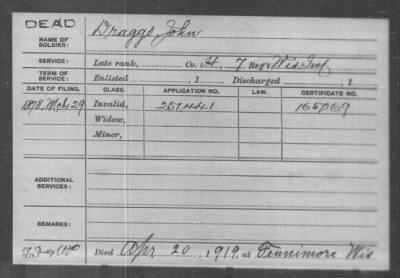 DEAD
NAME OF SOLDIER: Draggs, John
SERVICE: Late rank, Co. H, 7 Reg't Wis Inf
TERM OF SERVICE: Enlisted , 1 Discharged , 1
DATE OF FILING. CLASS. APPLICATION NO. LAW. CERTIFICATE NO.
1878, Mch 29 Invalid, 251441 165069
Widow,
Minor,
ADDITIONAL SERVICES:
REMARKS:
Died Apr 20, 1919, at Fennimore Wis